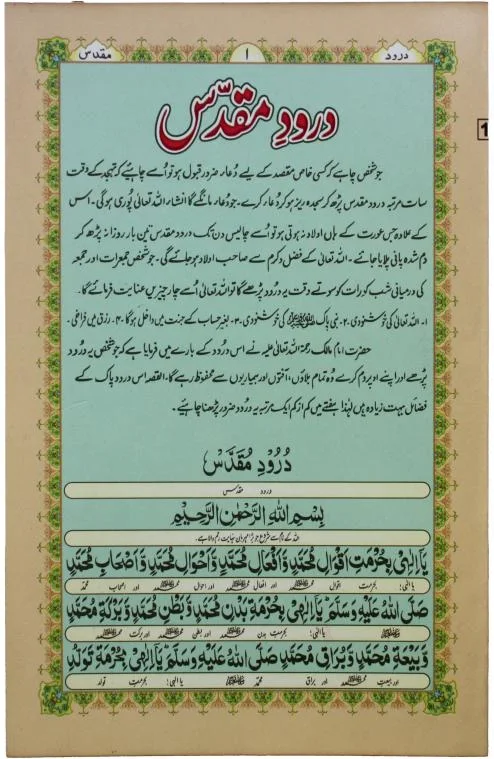 درود ۱ مقدس
درودِ مقدّس
جو شخص چاہے کہ کسی خاص مقصد کے لیے دُعاء ضرور قبول ہو تو اُسے چاہیئے کہ تہجد کے وقت
سات مرتبہ درود مقدس پڑھ کر سجدہ ریز ہو کر دُعاء کرے۔ جو دُعاء مانگے گا انشاء اللہ تعالیٰ پُوری ہو گی۔ اس
کے علاوہ جس عورت کے ہاں اولاد نہ ہوتی ہو تو اُسے چالیس دن تک درود مقدس تین بار روزانہ پڑھ کر
دم شدہ پانی پلایا جائے۔ اللہ تعالیٰ کے فضل و کرم سے صاحب اولاد ہو جائے گی۔ جو شخص جمعرات اور جمعہ
کی درمیانی شب کو رات کو سوتے وقت یہ درُود پڑھے گا تو اللہ تعالیٰ اُسے چار چیزیں عنایت فرمائے گا۔
۱۔ اللہ تعالیٰ کی خوشنودی ۲۔ نبی پاک ﷺ کی خوشنودی ۳۔ بغیر حساب کے جنت میں داخل ہو گا ۴۔ رزق میں فراخی۔
حضرت امام مالک رحمۃ اللہ تعالیٰ علیہ نے اس درُود کے بارے میں فرمایا ہے کہ جو شخص یہ درُود
پڑھے اور اپنے اوپر دم کرے وُہ تمام بلاؤں، آفتوں اور بیماریوں سے محفوظ رہے گا۔ القصہ اس درود پاک کے
فضائل بہت زیادہ ہیں لہٰذا ہفتے میں کم از کم ایک مرتبہ یہ درُود ضرور پڑھنا چاہیے۔
دُرُودِ مُقَدَّس
درود مقدس
بِسْمِ اللهِ الرَّحْمٰنِ الرَّحِيْمِ
اللہ کے نام سے شروع جو بڑا مہربان نہایت رحم والا ہے۔
يَا اِلٰهِيْ بِحُرْمَتِ اَقْوَالِ مُحَمَّدٍ وَّ اَفْعَالِ مُحَمَّدٍ وَّ اَحْوَالِ مُحَمَّدٍ وَّ اَصْحَابِ مُحَمَّدٍ
یا الٰہی! بحرمت اقوال محمد ﷺ اور افعال محمد ﷺ اور احوال محمد ﷺ اور اصحاب محمد
صَلَّى اللهُ عَلَيْهِ وَسَلَّمَ يَا اِلٰهِيْ بِحُرْمَةِ بَدَنِ مُحَمَّدٍ وَّ بَطْنِ مُحَمَّدٍ وَّ بَرَكَةِ مُحَمَّدٍ
ﷺ یا الٰہی! بحرمتِ بدن محمد ﷺ اور بطن محمد ﷺ اور برکت محمد ﷺ
وَّ بَيْعَةِ مُحَمَّدٍ وَّ بُرَاقِ مُحَمَّدٍ صَلَّى اللهُ عَلَيْهِ وَسَلَّمَ يَا اِلٰهِيْ بِحُرْمَةِ تَوَلُّدِ
اور بیعتِ محمد ﷺ اور براق محمد ﷺ یا الٰہی! بحرمتِ تولد
1